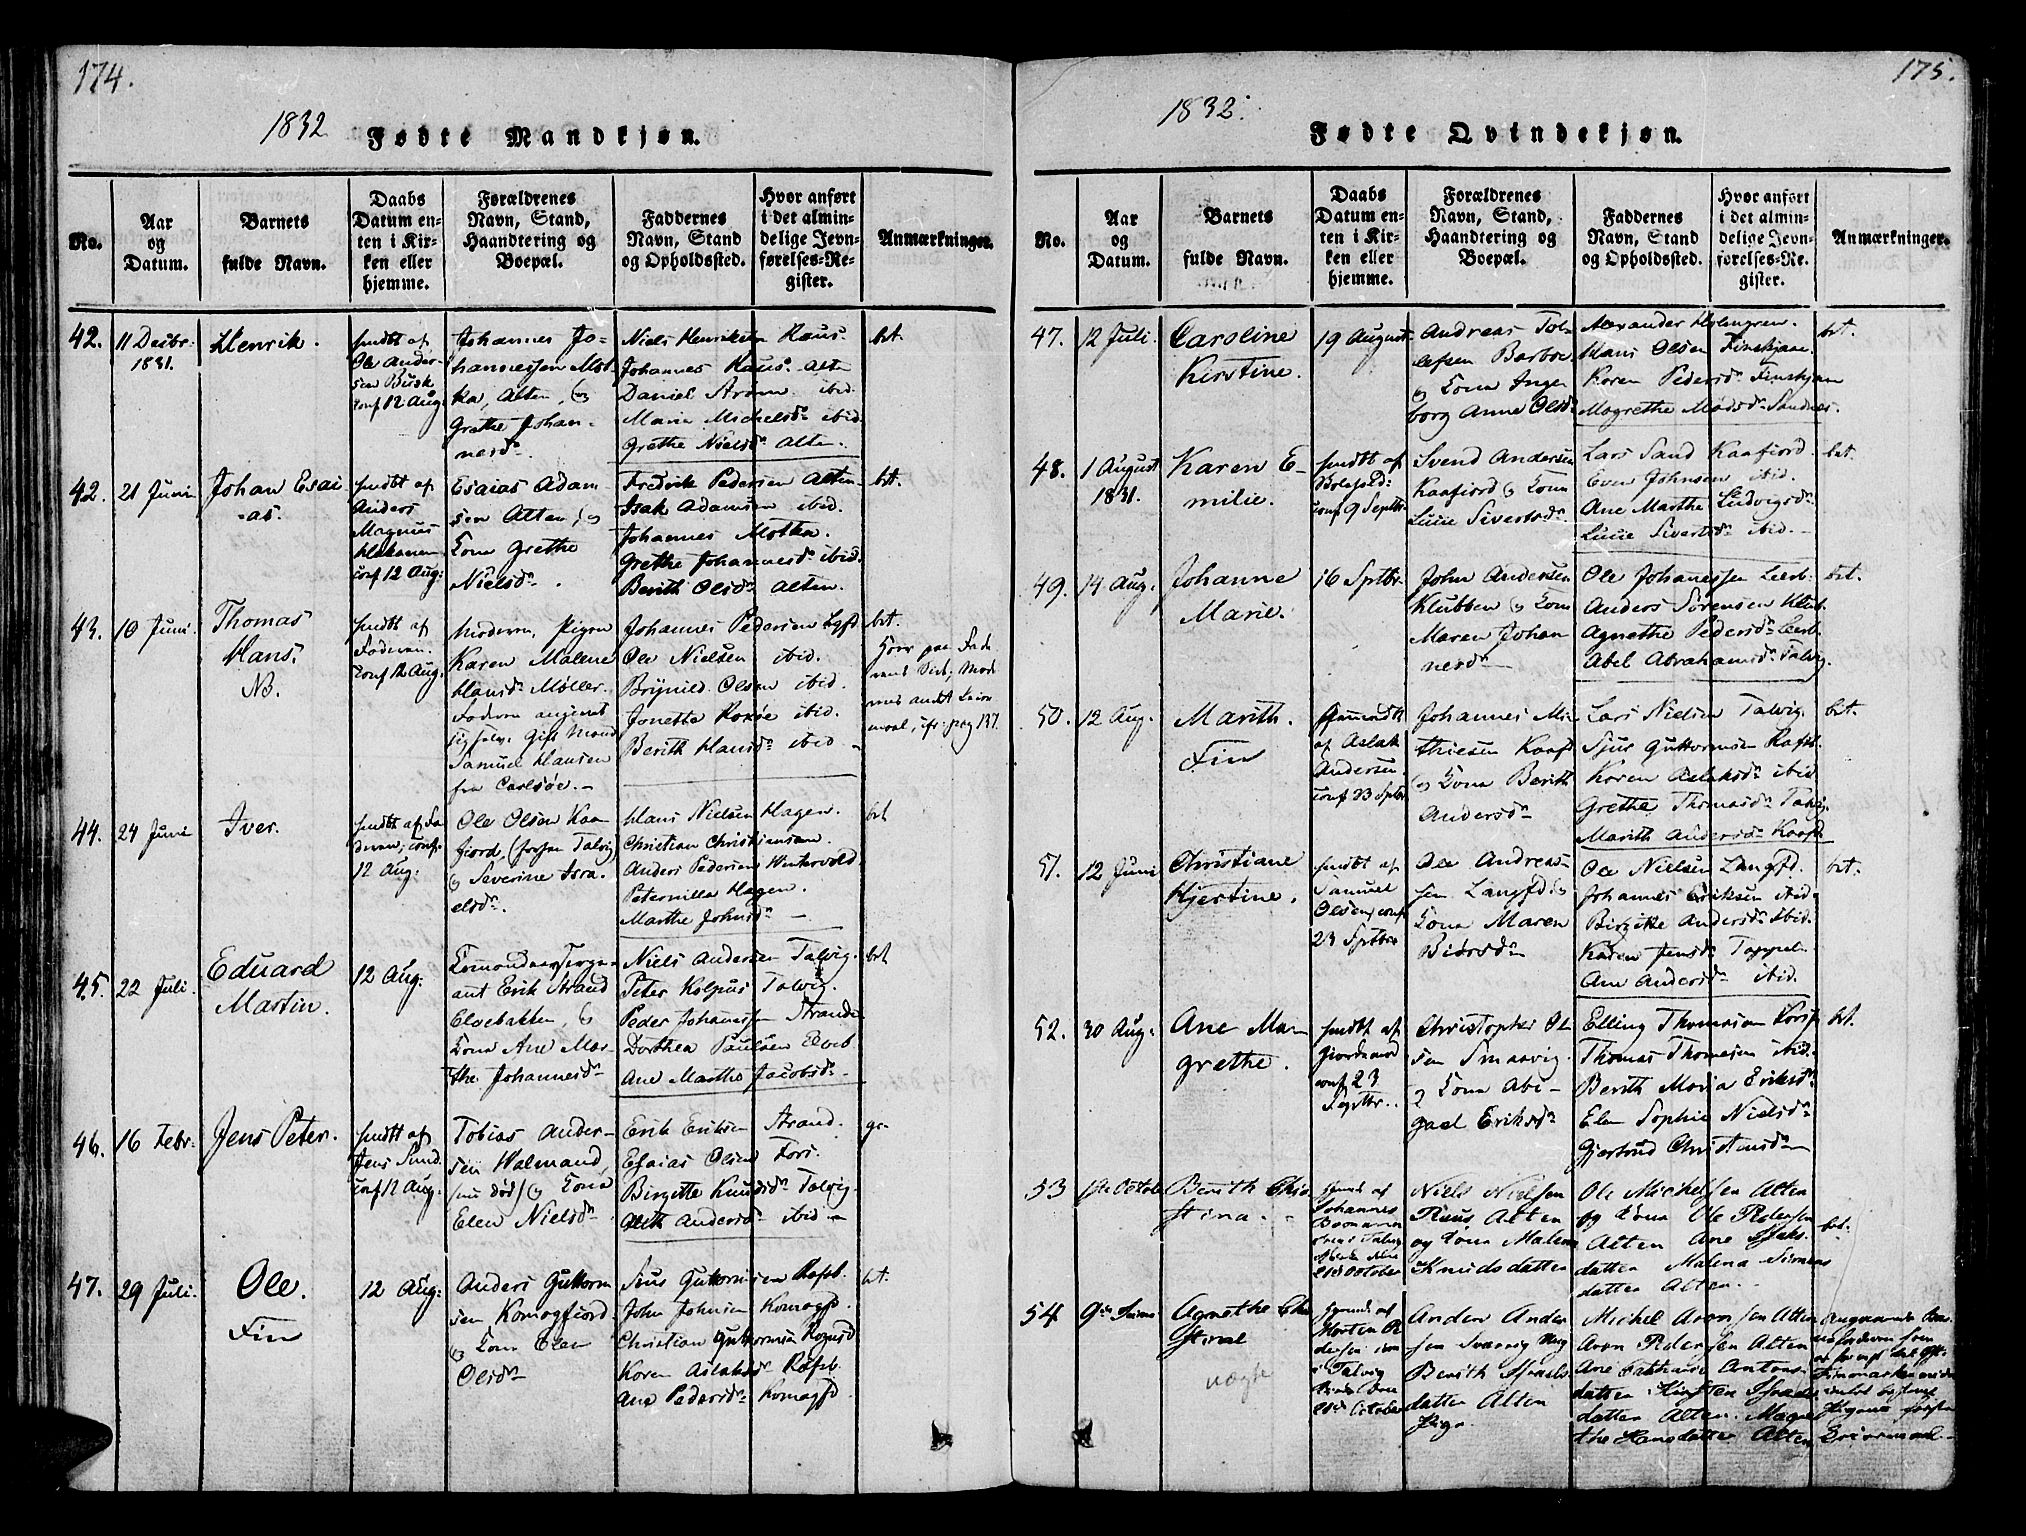 174.
1832
Fødte Mandkjøn.
No.
Aar
og
Datum.
Barnets
fulde Navn.
Daabs
Datum en-
ten i Kir-
ken eller
hjemme.
Forældrenes
Navn, Stand,
Haandtering og
Boepæl.
Faddernes
Navn, Stand
og Opholdssted.
Hvor anført
i det almin-
delige Jevn-
førelses-Re-
gister.
Anmærkninger.
42.
11 Decbr:
1831.
Henrik.
hmdt af
Ole Ander-
sen Busk
conf 12 Aug:
Johannes Jo-
hannessen Mot-
ka, Alten, og
Grethe Johan-
nesdr.
Niels Henriksen Raus.
Johannes Raus. Alten
Daniel Strøm. ibid.
Marie Michelsdr ibid.
Grethe Nielsdr Alten.
bet.
42.
21 Juni
Johan Esai
-as.
hmdt af
Anders
Magnus
Hakanen
conf 12 Aug:
Esaias Adam-
sen Alten, og
Kona Grethe
Nielsdr.
Fredrik Pedersen Alten
Isak Adamsen ibid.
Johannes Motka.
Grethe Johannesdr ibid.
Berith Olsdr Alten.
bet.
43.
10 Juni.
Thomas
Hans.
NB.
hmdt af
Faderen.
conf 12 Aug:
Moderen, Pigen
Karen Malene
Hansdr Møller.
Faderen angivet
sig selv. Gift Mand
Samuel Hansen
fra Carlsøe.-
Johannes Pedersen
Ole Nielsen ibid.
Brynild Olsen ibid.
Jonetta ibid.
Berith Hansdr ibid
bet.
Hoer paa Fade
rens Mod
rens andt Leier
maal, cfr: pag 137.
44.
24 Juni
Iver.
hmdt af Fa
deren, conf.
12 Aug:
Ole Olsen Kaa
fjord, Talvig
og Severine Isra
elsdr.
Hans Nielsen Hagen.
Christian Christiansen.
Anders Pedersen
Peternilla Hagen.
Marthe Johnsdr -
bet
45.
22 Juli.
Eduard
Martin.
12 Aug:
ant Erik Strand
Elvebakken, og
Kona Ane Mar-
the Johannesdr
Niels Andersen Talvig.
Peter Kolpus Talvig.
Peder Johannessen Strand
Dorthea Paulsen Elveb
Ane Marthe Jacobsdr -
bet
46.
16 Febr:
Jens Peter.
hmdt af
Jens Sund.
conf 12 Aug:
Tobias Ander-
sen Walmand,
(nu død) og Kona
Elen Nielsdr
Erik Eriksen Strand.
Esaias Olsen Fors.
Birgitte Knudsdr Talvig.
Andersdr ibid -
gr.
47.
29 Juli.
Ole.
Fin
12 Aug:
Anders Guttorm
sen, Komagfiord
og Kona Elen
Olsdr
Siur Guttormsen Rafsb.
John Johnsen Komagfd.
Christian Guttormsen
Karen Aslaksdr Rafsb.
Ane Pedersdr Komagfd
bt.
175.
1832.
Fødte Qvindekjøn.
No.
Aar
og
Datum.
Barnets
fulde Navn.
Daabs
Datum en-
ten i Kir-
ken eller
hjemme.
Forældrenes
Navn, Stand,
Haandtering og
Boepæl.
Faddernes
Navn, Stand
og Opholdssted.
Hvor anført
i det almin-
delige Jevn-
førelses-Re-
gister.
Anmærkninger.
47.
12 Juli.
Caroline
Kirstine.
19 August
Andreas Tol-
lefsen Barbro
og Kona Inger
borg Anne Olsdr
Alexander Holmgren.
Hans Olsen Finskjær.
Karen Pedersdr Finskjær
Magrethe
bet.
48.
1 August
1831.
Karen E-
milie.
hmdt af
conf 9 Septbr
Svend Andersen
Kaafiord og Kona
Lucie Sivertsdr
Lars Sand Kaafiord
Even Johnsen ibid.
Ane Marthe Ludvigsdr
Lucie Sivertsdr ibid. -
bet.
49.
14 Aug:
Johanne
Marie.
16 Sptbr.
John Andersen
Klubben og Kona
Maren Johan
nesdr
Ole Johannessen Leerb.
Anders Sørensen Klub.
Agnethe Pedersdr Leerb.
Abel Abrahamsdr Talvig.
bet.
50.
12 Aug.
Marith.
Fin
af Aslak
Andersen.
conf 23 Sptbr
Johannes Ma
thiesen Kaafd
og Kona Berith
Andersdr
Lars Nielsen Talvig.
Sjur Guttormsen Rafsb.
Karen Aslaksdr ibid
Grethe Thomasdr Talvig.
Marith Andersdr Kaafd
bet.
51.
12 Juni
Christiane
Kjerstine.
hmdt af
Samuel
Olsen, conf
23 Sptbr
Ole Andreas-
sen Langfd og
Kona Maren
Biørsdr
Ole Nielsen Langfd.
Johannes Eriksen ibid.
Birgitte Andersdr ibid.
Karen Jensdr Toppel.
Ane Andersdr ibid.
bet.
52.
30 Aug:
Ane Ma-
grethe.
hmdt af
conf 23
Septbr.
Christopher Ol
sen Smaavig
& Kona Abi-
gael Eriksdr
Elling Thomasen Korsf
Thomas Thomesen ibid.
Berith Maria Eriksdr
Elen Sophie Nielsdr
Gjertrud Christensdr
bet.
53
1ste Octobr
Berith Chri
stina. -
af
Johannes
21de October
Niels Nielsen
Ruus Alten
og Kona Malena
Knudsdatter
Ole Michelsen Alten
og Kona Ole Pedersen
Alten Ane Isaks-
datter Malena Simens
datter Alten.
bet.
54
9de Juni
Agnethe Chri
stine
uægte
af
Morten P
dersen
i Talvig
21de October
Anders Ander
sen Svanvig Ung
Berith Israels
datter Alten
Pige
Michel Aronsen Alten
Aron Pedersen Alten
Ane Cathrine Antons-
datter Kirsten Israels
datter Alten. Magre
the Hansdatter Alten
Angaaende Bar
nefaderen som
Finmarken
Pigens første
Leiermaal